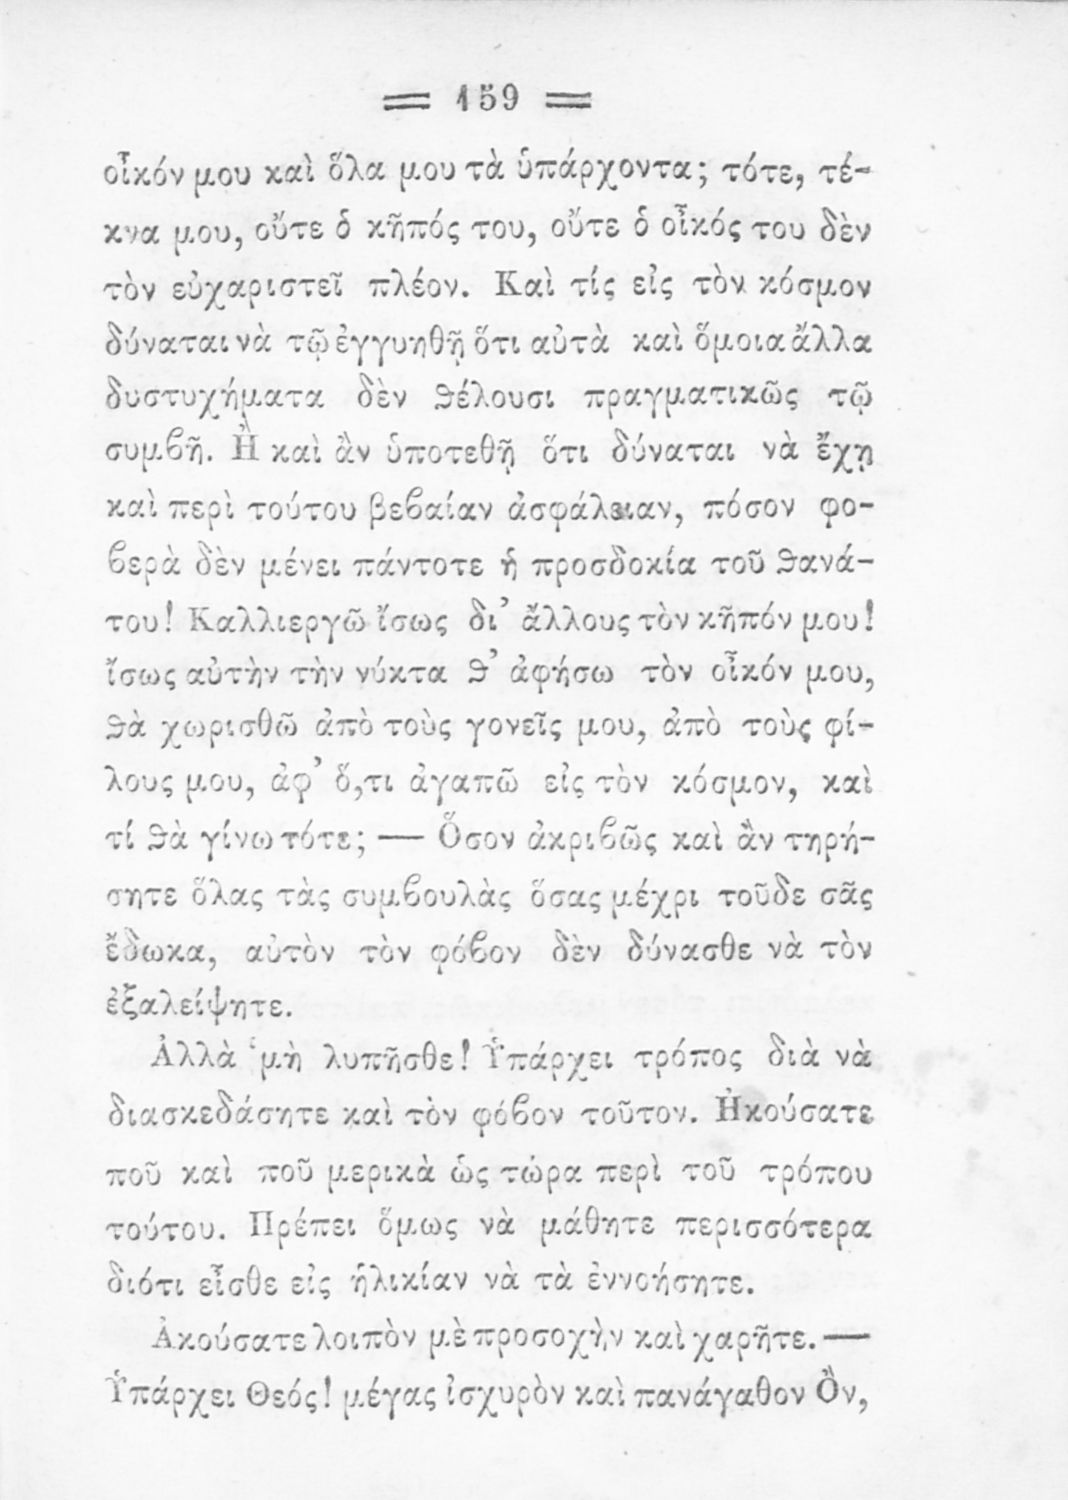 = 159 =
οἶκόν μου καὶ ὅλα μου τὰ ὑπάρχοντα; τότε, τέ-
κνα μου, οὔτε ὁ κῆπός του, οὔτε ὁ οἶκός του δὲν
τὸν εὐχαριστεῖ πλέον. Καὶ τίς εἰς τὸν κόσμον
δύναται νὰ τῷ ἐγγυηθῇ ὅτι αὐτὰ καὶ ὅμοια ἄλλα
δυστυχήματα δὲν ϑέλουσι πραγματικῶς τῷ
συμϐῆ. Ἢ καὶ ἂν ὑποτεθῇ ὅτι δύναται νὰ ἔχῃ
καὶ περὶ τούτου βεϐαίαν ἀσφάλειαν, πόσον φο-
ϐερὰ δὲν μένει πάντοτε ἡ προσδοκία τοῦ ϑανά-
του! Καλλιεργῶ ἴσως δι’ ἄλλους τὸν κῆπόν μου!
ἴσως αὐτὴν τὴν νύκτα ϑ’ ἀφήσω τὸν οἶκόν μου,
ϑὰ χωρισθῶ ἀπὸ τοὺς γονεῖς μου, ἀπὸ τοὺς φί-
λους μου, ἀφ’ ὅ,τι ἀγαπῶ εἰς τὸν κόσμον, καὶ
τί ϑὰ γίνω τότε; — Ὅσον ἀκριϐῶς καὶ ἂν τηρή-
σητε ὅλας τὰς συμϐουλὰς ὅσας μέχρι τοῦδε σᾶς
ἔδωκα, αὐτὸν τὸν φόϐον δὲν δύνασθε νὰ τὸν
ἐξαλείψητε.
Ἀλλὰ μὴ λυπῆσθε! Ὑπάρχει τρόπος διὰ νὰ
διασκεδάσητε καὶ τὸν φόϐον τοῦτον. Ἠκούσατε
ποῦ καὶ ποῦ μερικὰ ὡς τώρα περὶ τοῦ τρόπου
τούτου. Πρέπει ὅμως νὰ μάθητε περισσότερα
διότι εἶσθε εἰς ἡλικίαν νὰ τὰ ἐννοήσητε.
Ἀκούσατε λοιπὸν μὲ προσοχὴν καὶ χαρῆτε. —
Ὑπάρχει Θεός! μέγας ἰσχυρὸν καὶ πανάγαθον Ὂν,